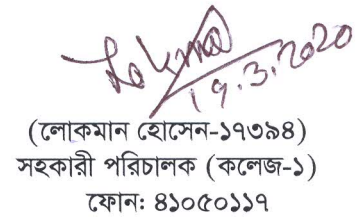 19.3.2020
(লোকমান হোসেন-১৭৩৯৪)
সহকারী পরিচালক (কলেজ-১)
ফোন: ৪১০৫০১১৭